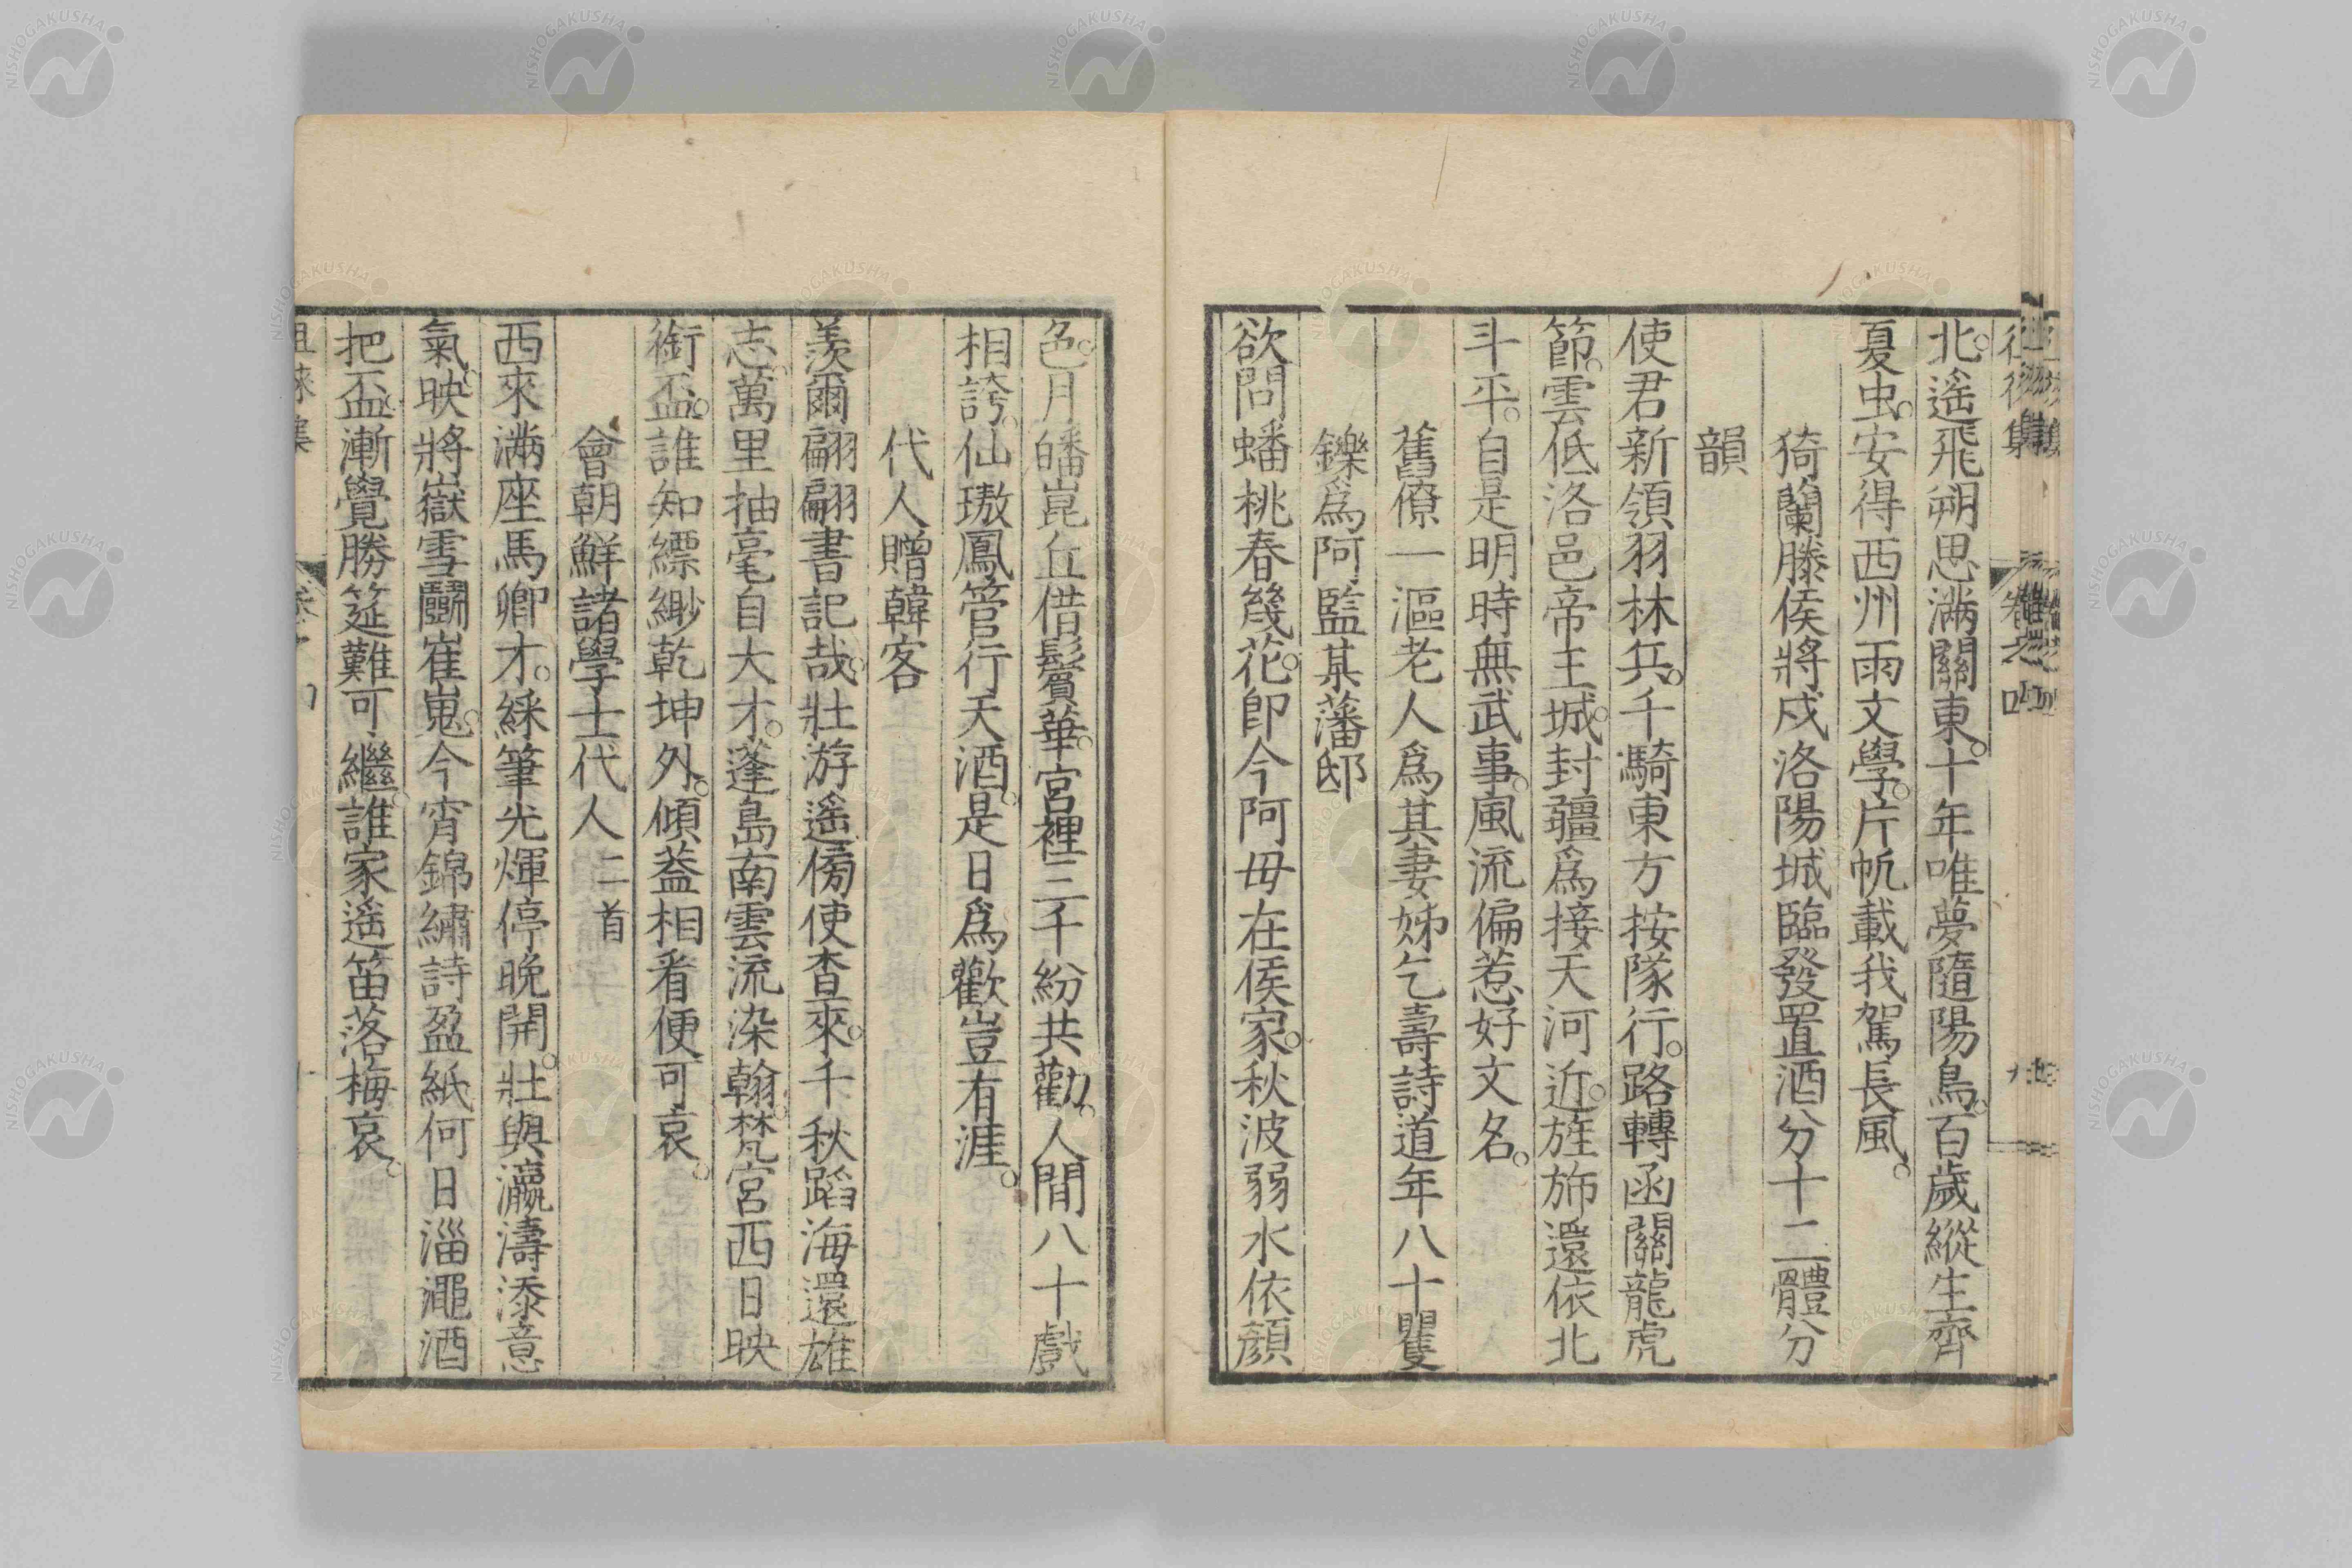 徂徠集 卷之四 九
北。遙飛朔思滿關東。十年唯夢隨陽鳥。百歲縱生齊
夏虫。安得西州雨文學。片帆載我駕長風。
猗蘭滕侯將戍洛陽城臨發置酒分十二體分
韻
使君新領羽林兵。千騎東方按隊行。路轉函關龍虎
節。雲低洛邑帝王城。封疆爲接天河近。旌斾還依北
斗平。自是明時無武事。風流偏惹好文名。
舊僚一漚老人爲其妻姊乞壽詩道年八十矍
鑠爲阿監某藩邸
欲問蟠桃春幾花。即今阿母在侯家。秋波弱水依顏
色。月皤崑丘借鬢華。宮裡三千紛共勸。人間八十戲
相誇。仙璈鳳管行天酒。是日爲歡豈有涯。
代人贈韓客
羨爾翩翩書記哉。壯游遙傍使査來。千秋蹈海還雄
志。萬里抽毫自大才。蓬島南雲流染翰。梵宮西日映
銜盃。誰知縹緲乾坤外。傾蓋相看便可哀。
會朝鮮諸學士代人二首
西來滿座馬卿才。綵筆光煇停晚開。壯與瀛濤添意
氣。映將嶽雪鬪崔嵬。今宵錦繡詩盈紙。何日淄澠酒
把盃。漸覺勝筵難可繼。誰家遙笛落梅哀。
徂徠集
NISHOGAKUSHA